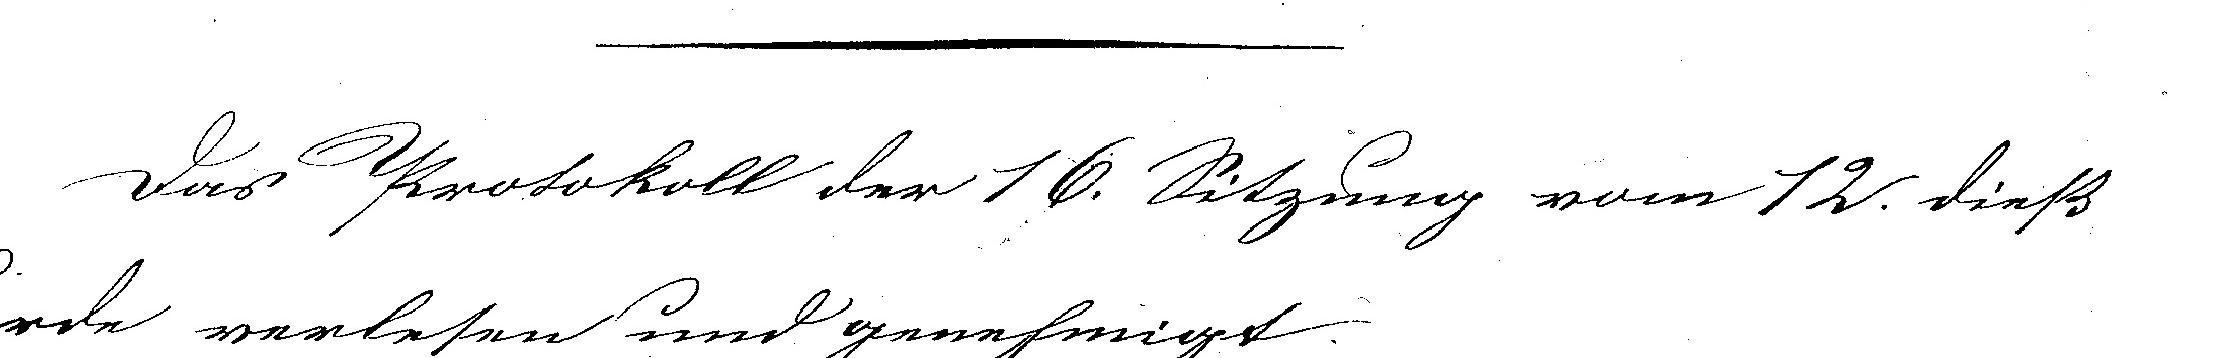 Das Protokoll der 16. Sitzung vom 12. dieß
rde verlesen und genehmigt.